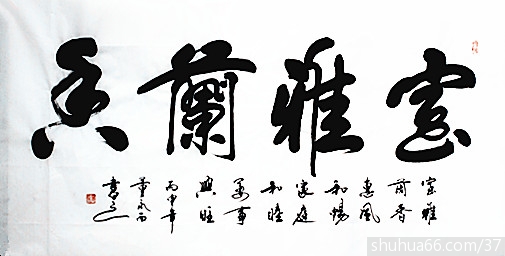 室雅蘭香
室雅
蘭香
惠風
和暢
家庭
和睦
萬事
興旺
丙申年
書
shuhua66.com/37